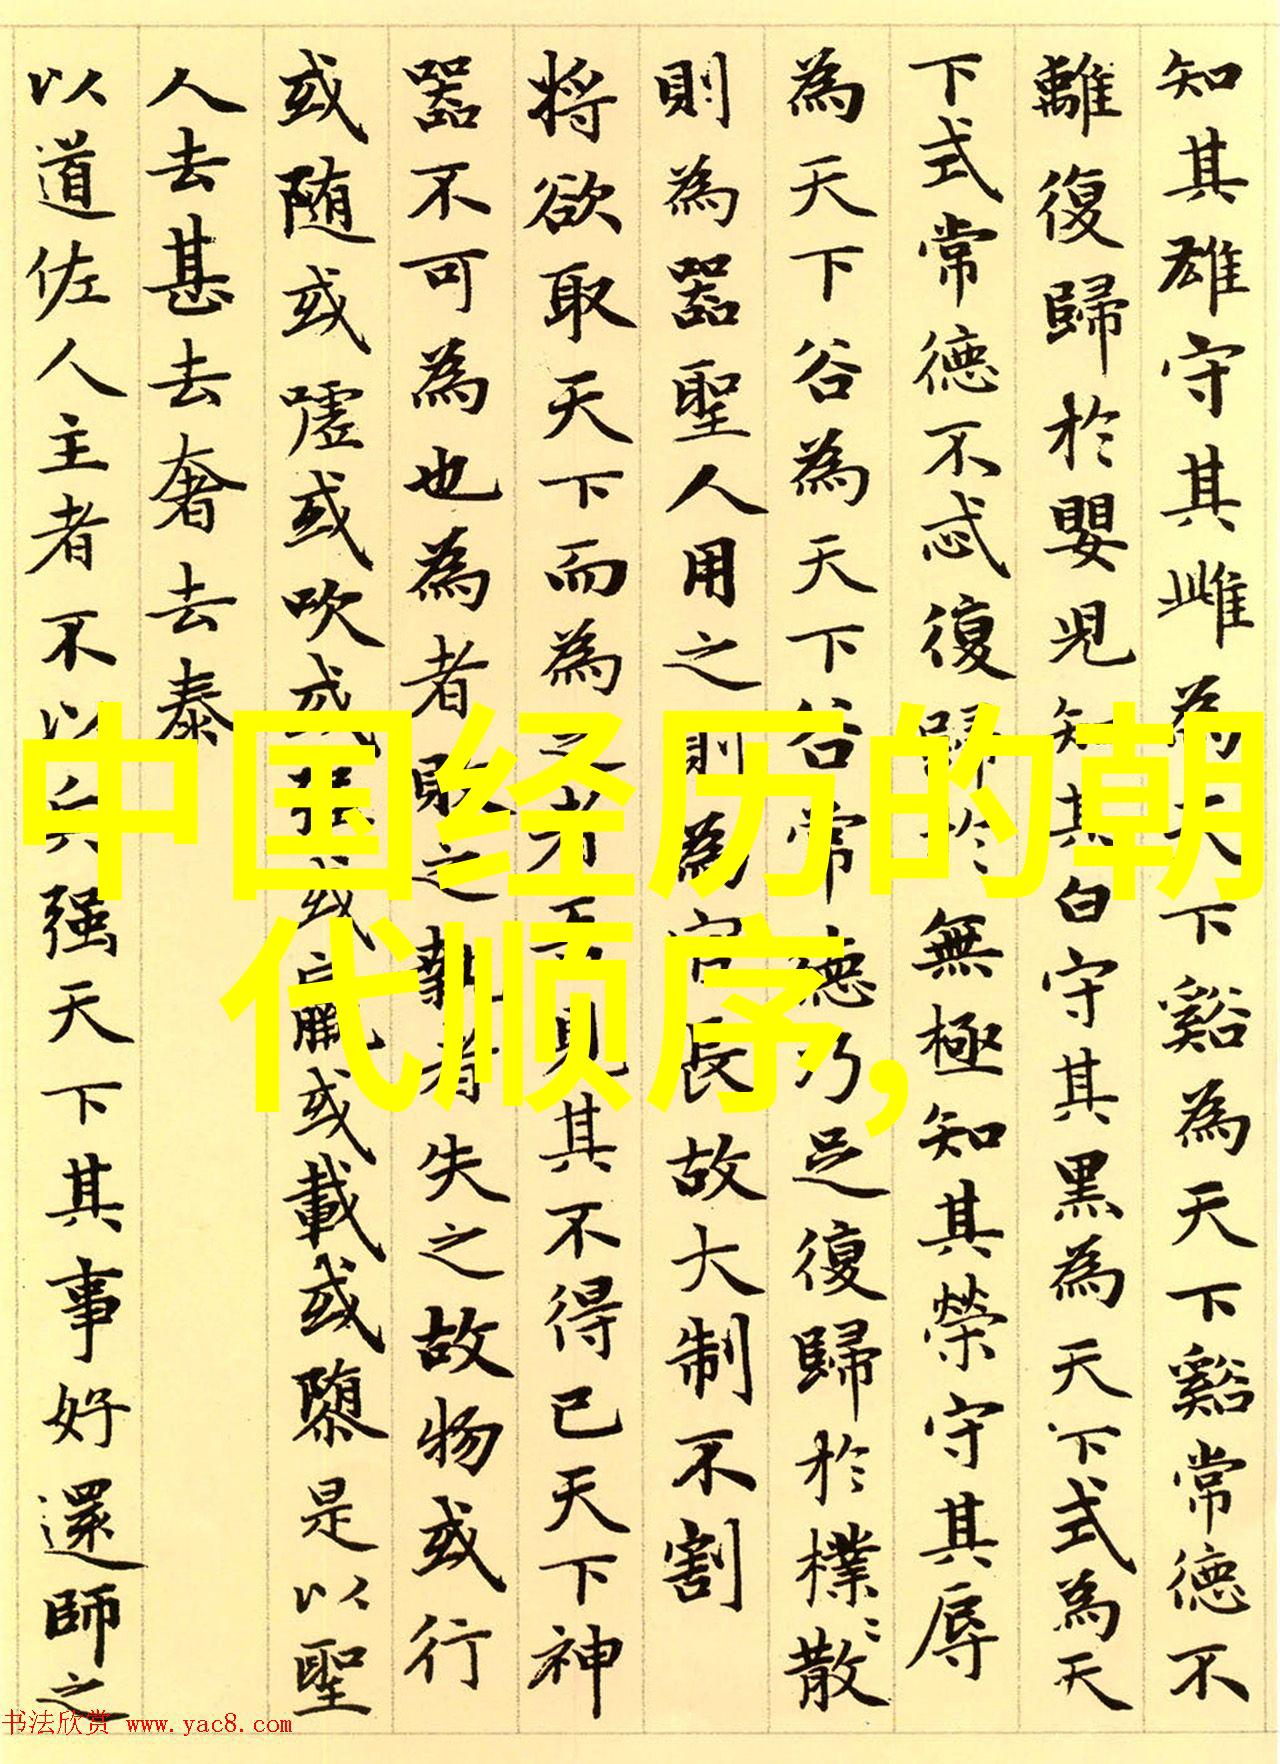 知其雄守其雌為天下谿為天下谿常德不
離復歸於嬰兒知其白守其黑為天下式為天
下式常德不忒復歸於無極知其榮守其辱
為天下谷為天下谷常德乃足復歸於樸〻散
則為器聖人用之則為官長故大制不割
将欲取天下而為之者吾見其不得已天下神
器不可為也為者敗之執者失之故物或行
或随或噓或吹或强或羸或載或隳是以聖
人去甚去奢去泰
以道佐人主者不以兵强天下其事好還師之
中国经历的朝
代顺序,
书法欣赏 www.yac8.com